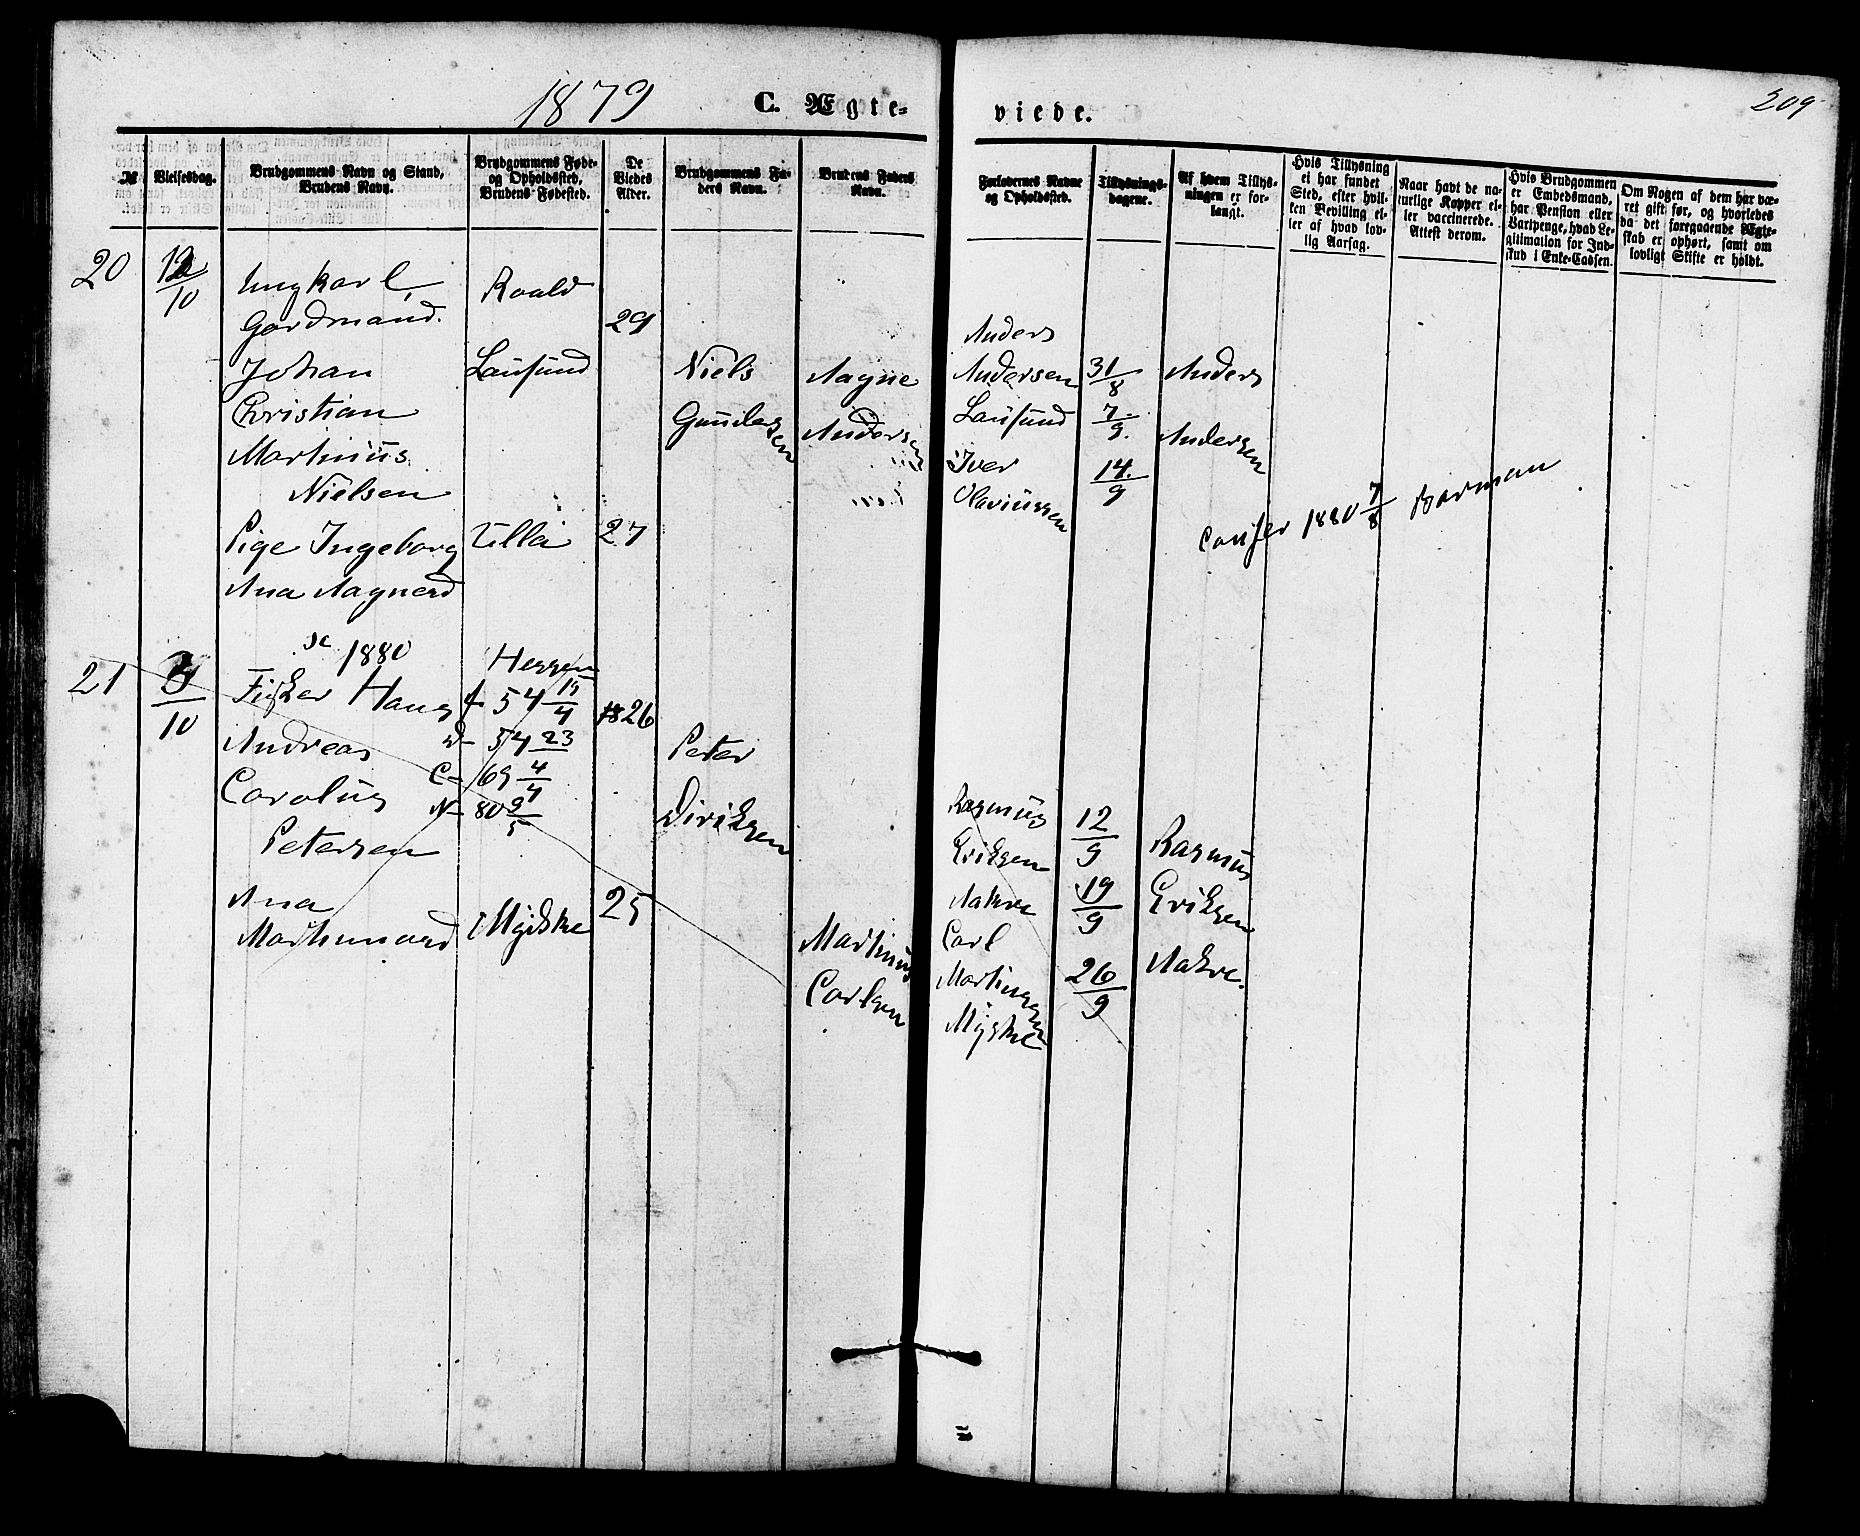 1879
C. Ægte-
viede.
209
№
Vielsesdag.
Brudgommens Navn og Stand,
Brudens Navn.
Brudgommens Føde-
og Opholdssted.
Brudens Fødested.
De
Viedes
Alder.
Brudgommens Fa-
ders Navn.
Brudens Faders
Navn.
Forlovernes Navne
og Opholdssted.
Tillysnings-
dagene.
Af hvem Tillys-
ningen er for-
langt.
Hvis Tillysning
ei har fundet
Sted, efter hvil-
ken Bevilling el-
ler af hvad lov-
lig Aarsag.
Naar havt de na-
turlige Kopper el-
ler vaccinerede.
Attest derom.
Hvis Brudgommen
er Embedsmand,
har Pension eller
Vartpenge, hvad Le-
gitimation for Ind-
skud i Enke-Cassen.
Om Nogen af dem har væ-
ret gift før, og hvorledes
da det foregaaende Ægte-
skab er ophørt, samt om
lovligt Skifte er holdt.
20
12/10
Ungkarl,
Gardmand.
Johan
Christian
Martinus
Nielsen
Pige Ingeborg
Ana Aagnesd
Roald
Lausund
Ulla
29
27
Niels
Gunder
sen
Aagne
Anders
en
Anders
Andersen
Lausund
Iver
Olariussen
31/8
7/9.
14./9
Anders
Andersen
confer 1880 7/8
21
3/10
sc 1880
Fisker Hans
Andreas
Carolus
Petersen
Ana
Martinusd
Hessen
f 54 15/4
d- 54 23/
C- 69 4/4
N- 80 9/5
Myskle
1826
25
Peter
Diriksen
Martinus
Carlsen
Rasmus
Eriksen
Aakre
Carl
Martinussen
Myskle
12/9
19/9
26/9
Rasmus
Eriksen
Aakre.